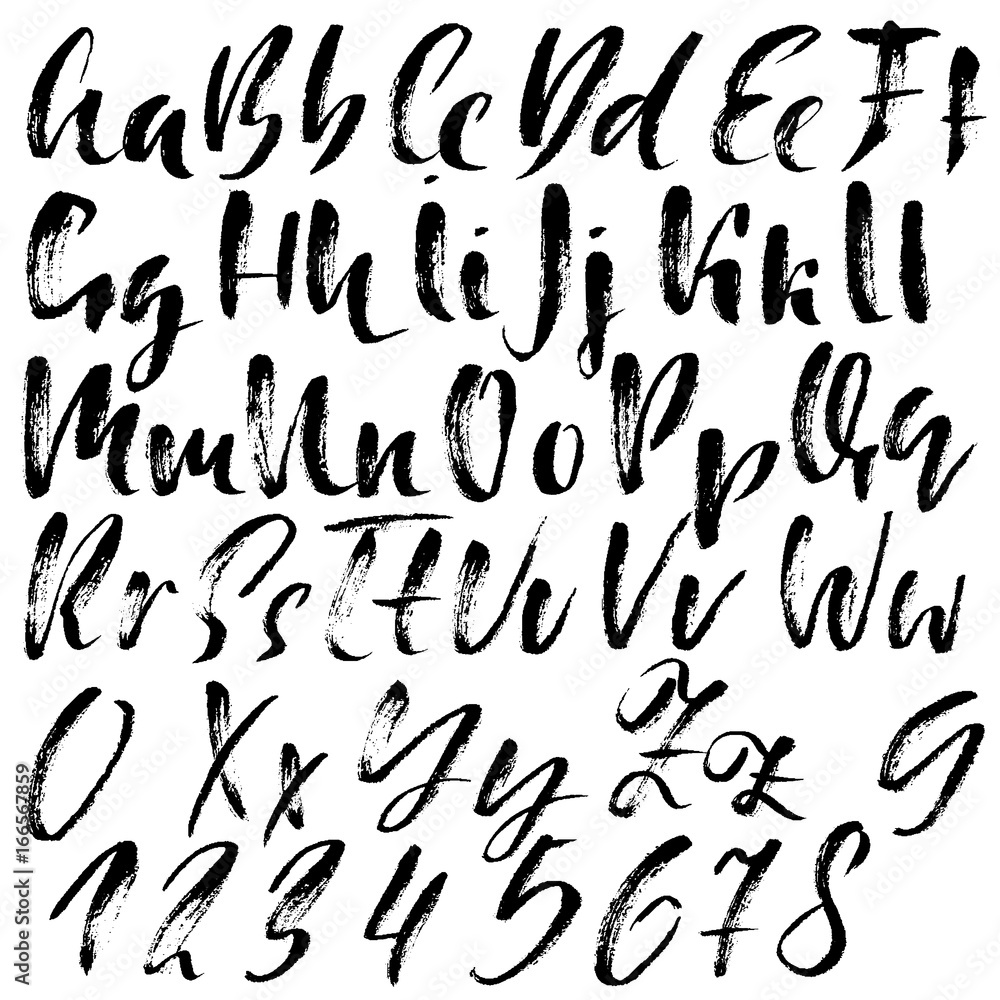 AaBbCcDdEeFf
GgHhIiJjKkLl
MmNnOoPpQq
RrSsTtUuVvWw
0XxYyZz9
12345678
Adobe Stock | #166567859